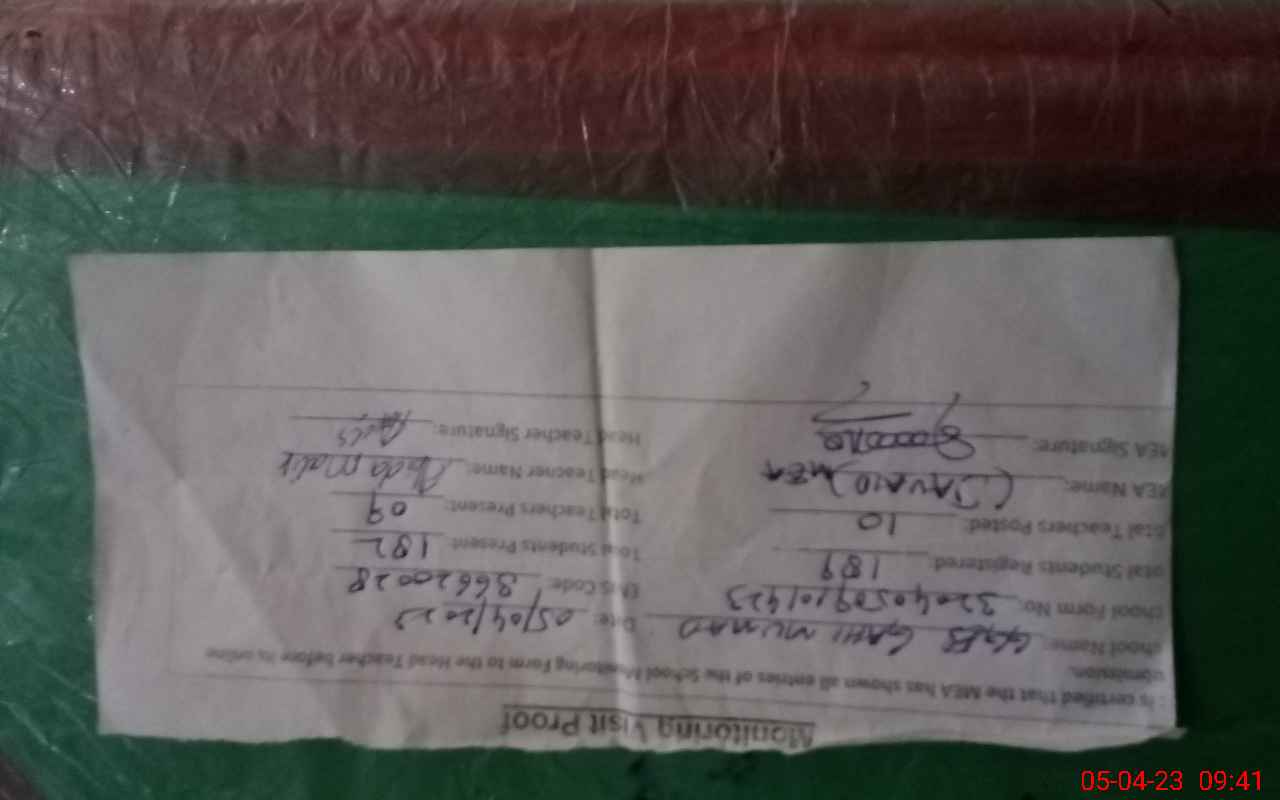 Monitoring Visit Proof
is certified that the MEA has shown all entries of the School Monitoring Form to the Head Teacher before its online
ubmission.
chool Name: GGPS GAHI MUMAD Date: 05/04/2023
chool Form No: 32040509101423 EMIS Code:
otal Students Registered: 189 Total Students Present: 182
otal Teachers Posted: 10 Total Teachers Present: 09
MEA Name: (JAVAID) MEA Head Teacher Name:
MEA Signature: Head Teacher Signature:
05-04-23 09:41